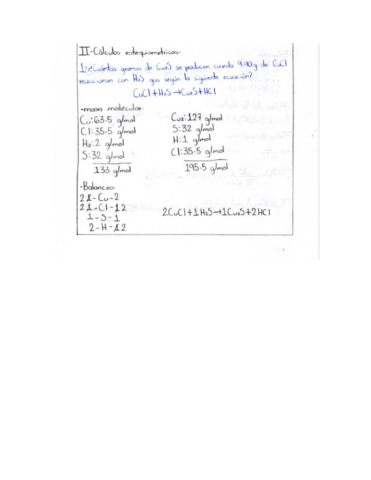 II-Cálculos estequiometricos-
1-¿Cuántos gramos de Cu₂S se producen cuando 9.90g de CuCl
reaccionan con H₂S gas según la siguiente ecuación?
CuCl+H₂S→Cu₂S+HCl
-masa molecular-
Cu:63.5 g/mol
Cl:35.5 g/mol
H₂:2 g/mol
S:32 g/mol
133 g/mol
Cu₂:127 g/mol
S:32 g/mol
H:1 g/mol
Cl:35.5 g/mol
195.5 g/mol
-Balanceo-
21-Cu-2
21-Cl-12
1-S-1
2-H-12
2CuCl+1H₂S→1Cu₂S+2HCl